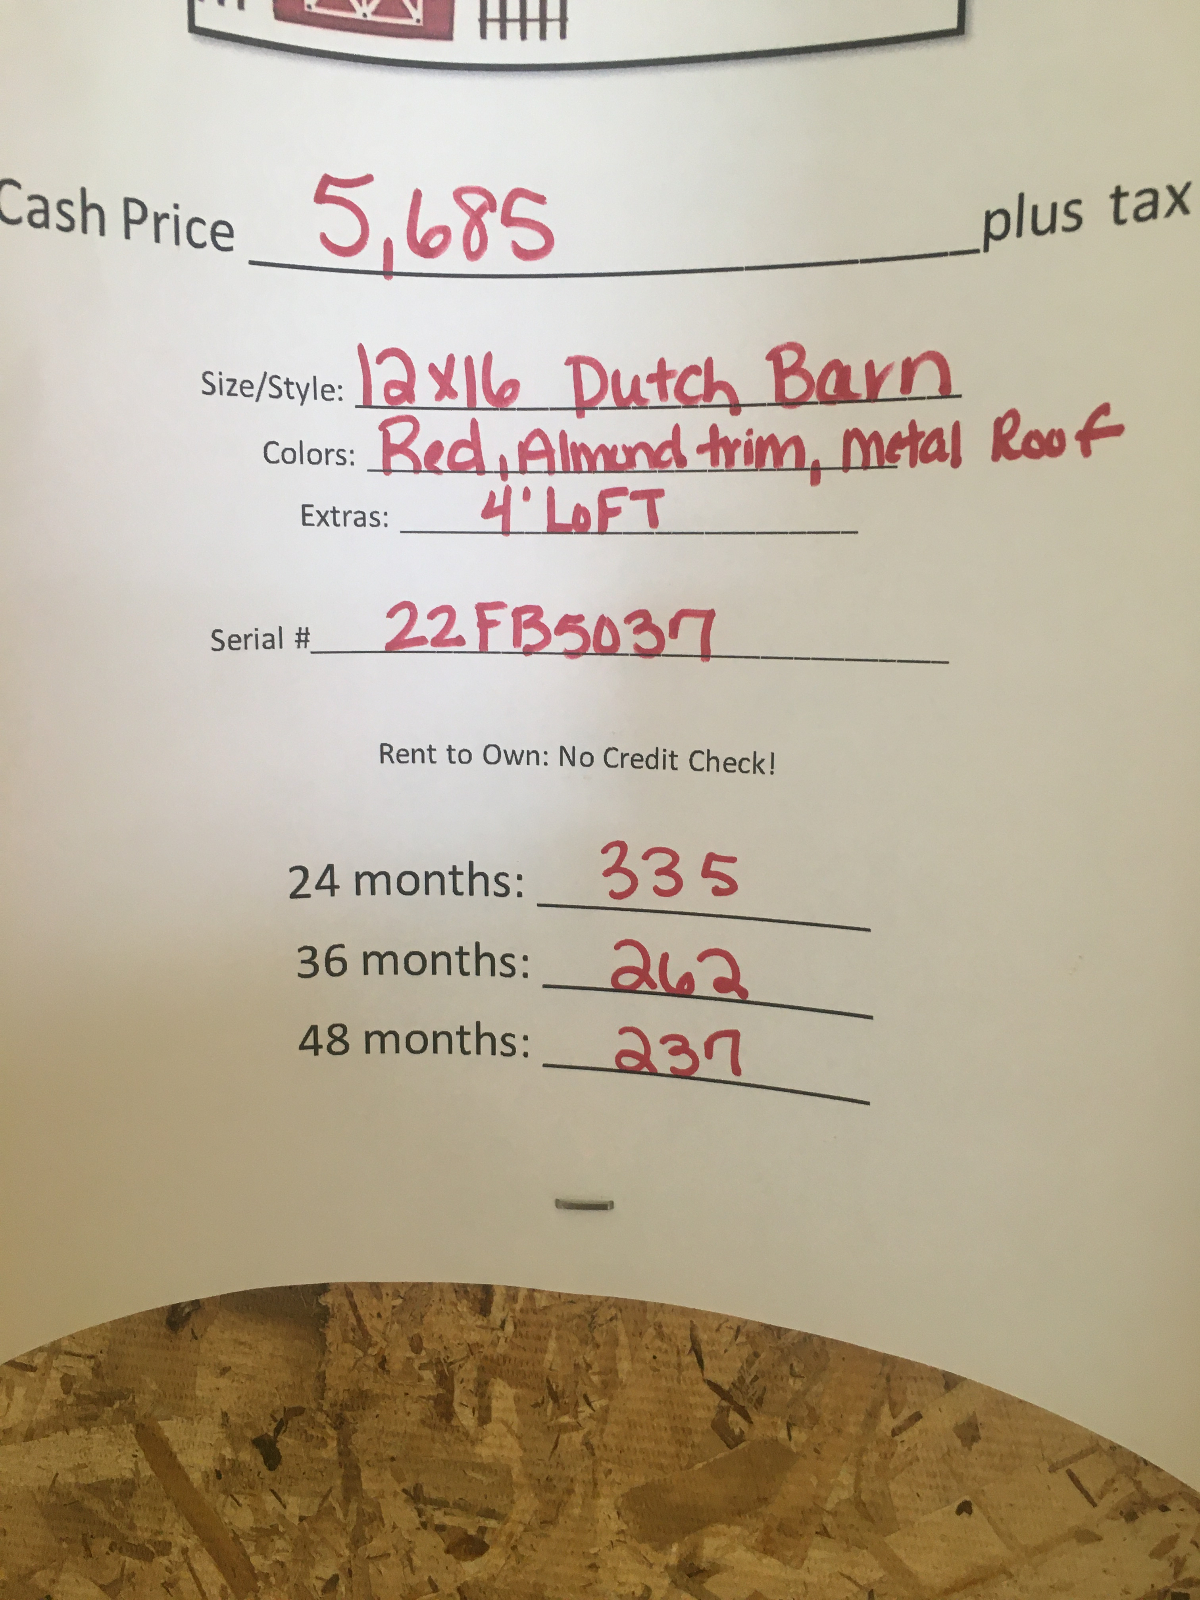 Cash Price 5,685 plus tax
Size/Style: 12x16 Dutch Barn
Colors: Red, Almond trim, Metal Roof
Extras: 4' LOFT
Serial # 22FB5037
Rent to Own: No Credit Check!
24 months: 335
36 months: 262
48 months: 237